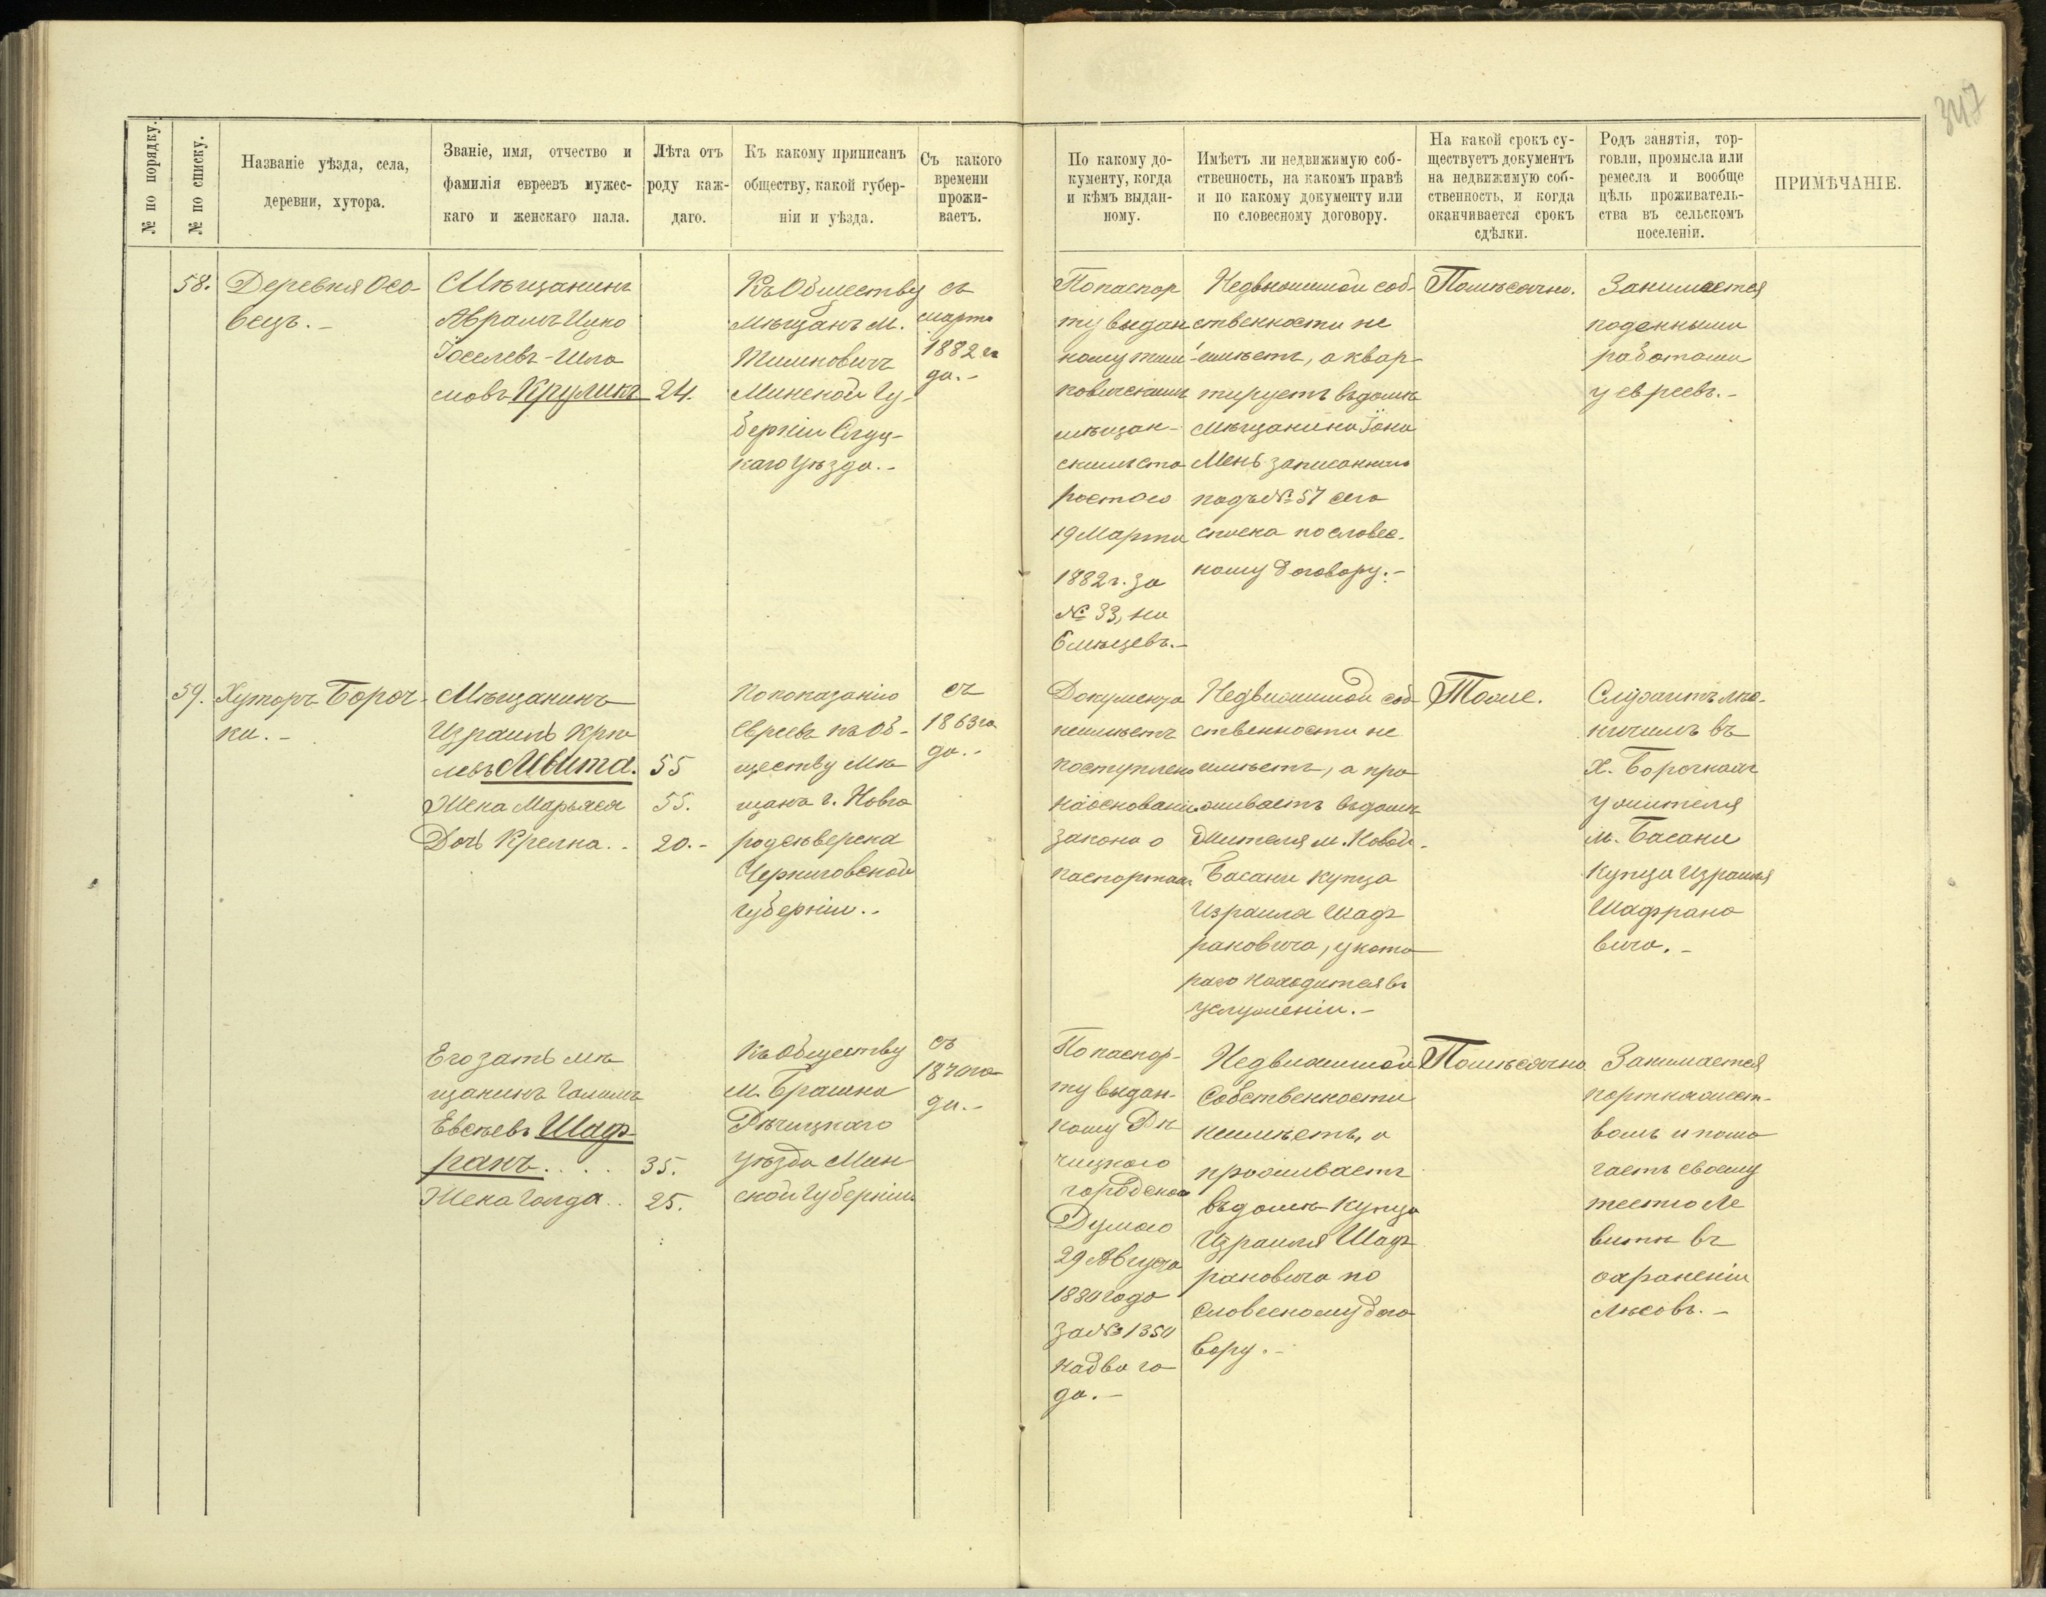 347
№ по порядку.
№ по списку.
Названіе уѣзда, села,
деревни, хутора.
Званіе, имя, отчество и
фамилія евреевъ мужес-
каго и женскаго пала.
Лѣта отъ
роду каж-
даго.
Къ какому приписанъ
обществу, какой губер-
ніи и уѣзда.
Съ какого
времени
прожи-
ваетъ.
По какому до-
кументу, когда
и кѣмъ выдан-
ному.
Имѣетъ ли недвижимую соб-
ственность, на какомъ правѣ
и по какому документу или
по словесному договору.
На какой срокъ су-
ществуетъ документъ
на недвижимую соб-
ственность, и когда
оканчивается срокъ
сдѣлки.
Родъ занятія, тор-
говли, промысла или
ремесла и вообще
цѣль проживатель-
ства въ сельскомъ
поселеніи.
ПРИМѢЧАНІЕ.
58.
Деревня Осо-
вецъ.-
Мѣщанинъ
Аврамъ Ицко
Іоселевъ-Шло
мовъ Круликъ
24.
Къ Обществу
Мѣщанъ М.
Тимковичъ
Минской Гу-
берніи Слуц-
каго Уѣзда.-
съ
марта
1882 го
да.-
По паспор
ту выдан
ному Тим
ковическимъ
мѣщан-
скимъ ста
ростою
19 Марта
1882 г. за
№ 33, на
6 мѣсцевъ.-
Недвижимой соб-
ственности не
имѣетъ, а квар-
тируетъ въ домѣ
Мѣщанина Іона
Мень записаннаго
подъ № 57 сего
списка по словес-
ному договору.-
Помѣсячно.
Занимается
поденными
работами
у евреевъ.-
59.
Хуторъ Бороч-
ки.-
Мѣщанинъ
Израиль Хрю
левъ Лвита.
55
Жена Марьяся
55.
Дочь Крейна..
20.-
По показанію
Евреевъ къ Об-
ществу Мѣ
щанъ г. Новго
родсѣверска
Черниговской
Губерніи..
съ
1863 го
да.-
Документа
неимѣетъ
поступлено
на основаніи
закона о
паспортахъ
Недвижимой соб
ственности не
имѣетъ, а про
живаетъ въ домѣ
жителя м. Новой-
Басани купца
Израиля Шаф
рановича, у кото
раго находится въ
услуженіи.-
Тоже.
Служитъ лѣс-
ничимъ въ
Х. Борочкахъ
у жителя
м. Басани
Купца Израиля
Шафрано
вича.-
Его зять мѣ
щанинъ Хаимъ
Евсѣевъ Шаф-
ранъ....
35.
Жена Голда..
25.
Къ Обществу
М. Брагина
Рѣчицкаго
Уѣзда Мин
ской Губерніи
съ
1870 го
да.-
По паспор-
ту выдан-
ному Рѣ
чицкою
городскою
Думою
29 Августа
1880 года
за № 1350
на два го
да.-
Недвижимой
Собственности
неимѣетъ, а
проживаетъ
въ домѣ Купца
Израиля Шаф
рановича по
Словесному дого
вору.-
Помѣсячно
Занимается
портняжест-
вомъ и помо
гаетъ своему
тестю Ле
витѣ въ
охраненіи
лѣсовъ.-